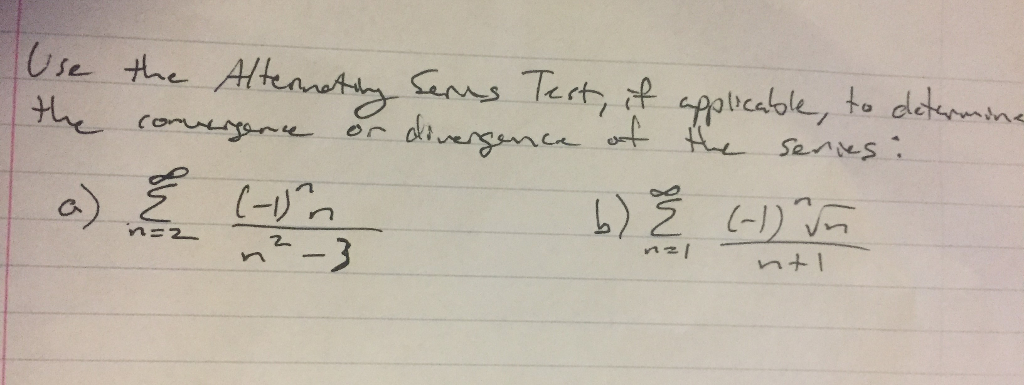 Use the Alternating Series Test, if applicable, to determine
the convergence or divergence of the series:
a) ∞ Σ n=2 (-1)^n n / n^2 - 3 b) ∞ Σ n=1 (-1)^n √n / n+1